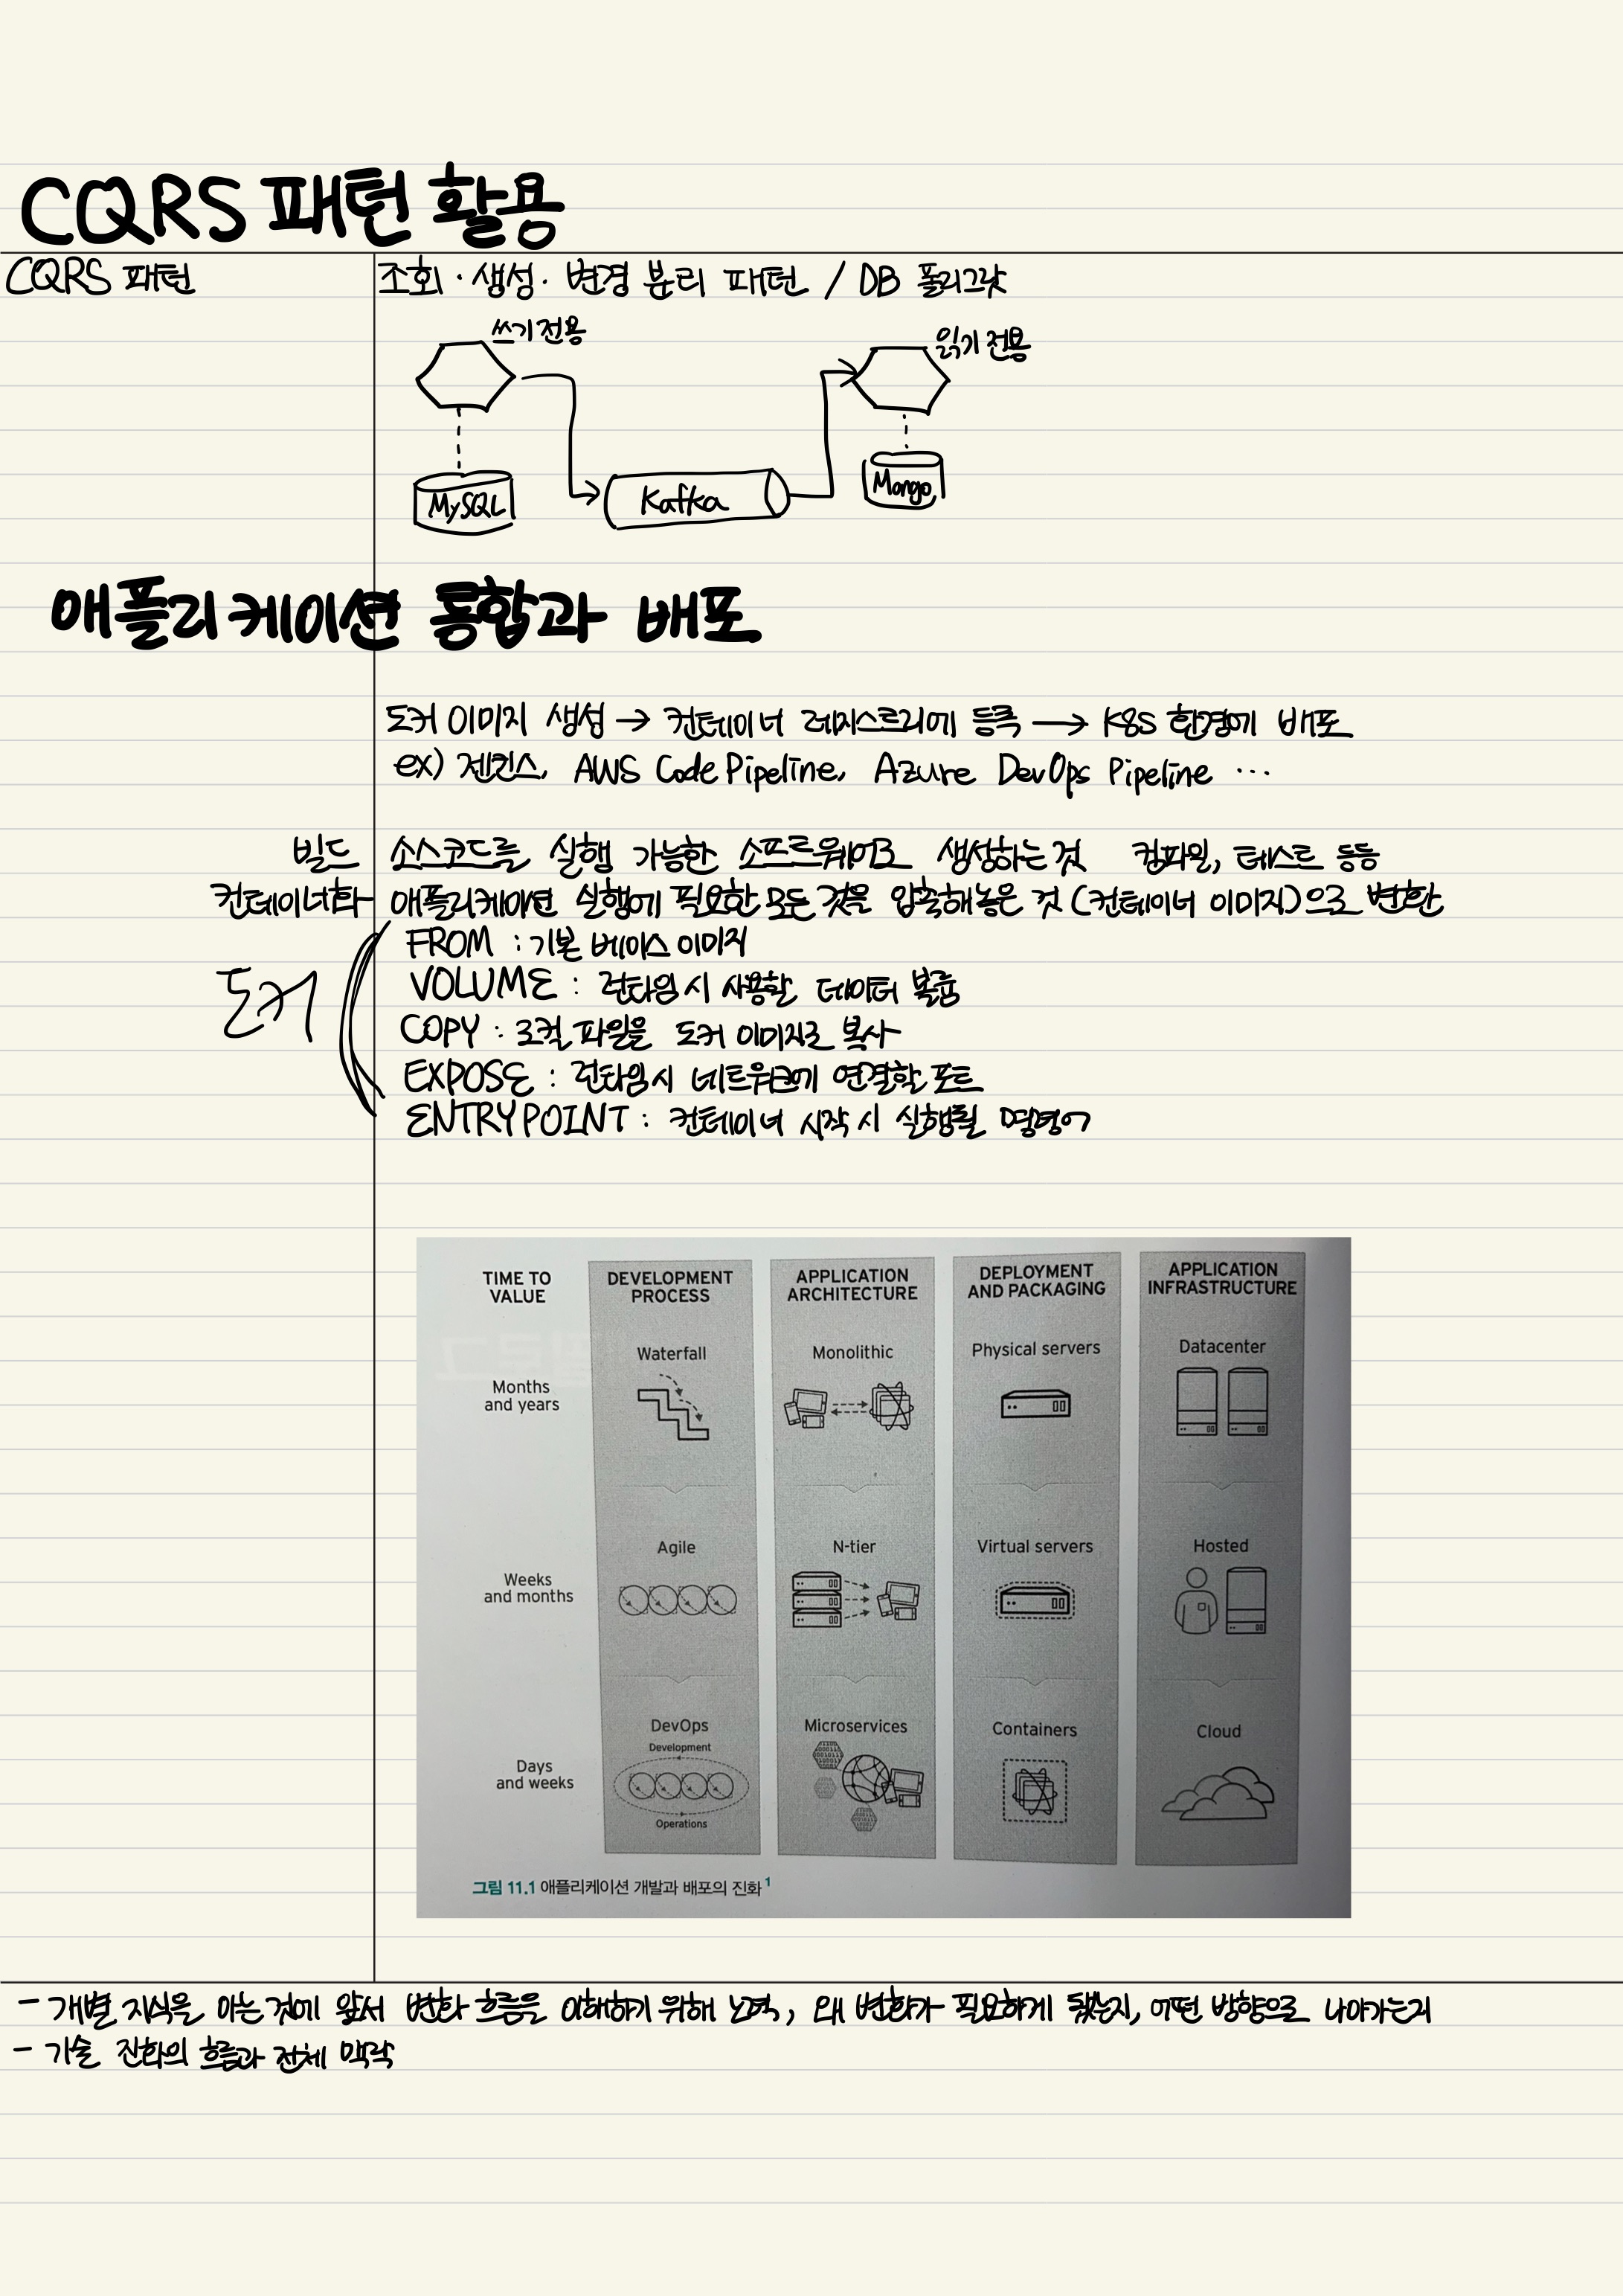 CQRS 패턴 활용
CQRS 패턴
조회·생성·변경 분리 패턴 / DB 폴리그랏
쓰기 전용
읽기 전용
MySQL
Kafka
Mongo
애플리케이션 통합과 배포
도커 이미지 생성 → 컨테이너 레지스트리에 등록 → K8S 환경에 배포
ex) 젠킨스, AWS Code Pipeline, Azure DevOps Pipeline ...
빌드 소스코드를 실행 가능한 소프트웨어로 생성하는 것 컴파일, 테스트 등등
컨테이너화 애플리케이션 실행에 필요한 모든 것을 압축해놓은 것 (컨테이너 이미지)으로 변환
도커
FROM : 기본 베이스 이미지
VOLUME : 런타임 시 사용할 데이터 볼륨
COPY : 로컬 파일을 도커 이미지로 복사
EXPOSE : 런타임 시 네트워크에 연결할 포트
ENTRYPOINT : 컨테이너 시작 시 실행될 명령어
TIME TO VALUE
DEVELOPMENT PROCESS
APPLICATION ARCHITECTURE
DEPLOYMENT AND PACKAGING
APPLICATION INFRASTRUCTURE
Months and years
Waterfall
Monolithic
Physical servers
Datacenter
Weeks and months
Agile
N-tier
Virtual servers
Hosted
Days and weeks
DevOps
Development
Operations
Microservices
Containers
Cloud
그림 11.1 애플리케이션 개발과 배포의 진화 1
- 개별 지식을 아는 것에 앞서 변화 흐름을 이해하기 위해 노력, 왜 변화가 필요하게 됐는지, 어떤 방향으로 나아가는지
- 기술 진화의 흐름과 전체 맥락